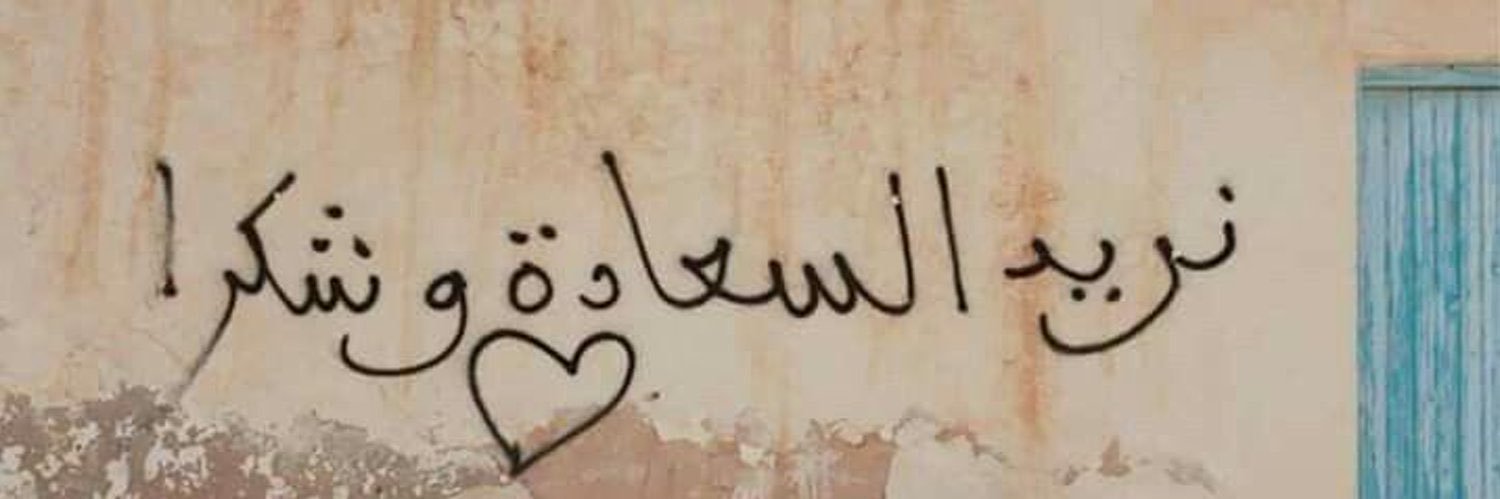 نريد السعادة وشكرا